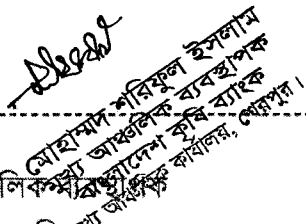 মোহাম্মদ শরিফুল ইসলাম
মুখ্য আঞ্চলিক ব্যবস্থাপক
বাংলাদেশ কৃষি ব্যাংক
মুখ্য আঞ্চলিক কার্যালয়, শেরপুর।